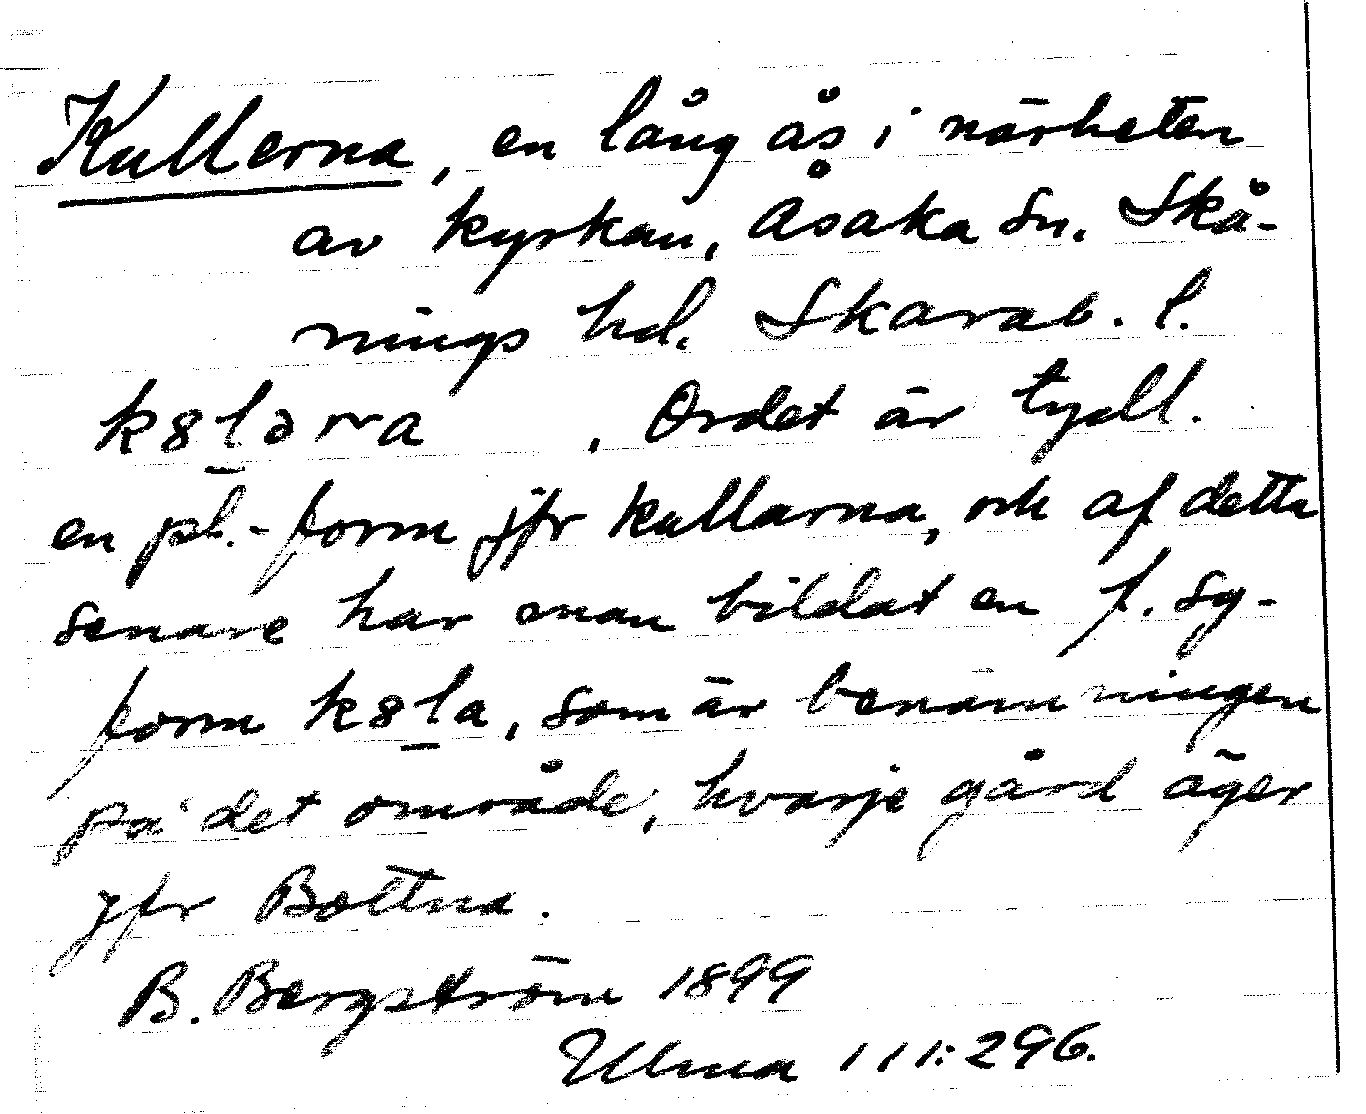 Kullerna, en lång ås i närheten
av kyrkan, Åsaka sn. Skå-
nings hd. Skarab. l.
k8lə̠rna, Ordet är tydl.
en pl.-form jfr kullarna, och af detta
senare har man bildat en f. sg-
form k8l̠a, som är benämningen
på det område, hvarje gård äger
jfr Bottna.
B. Bergström 1899
Ulma 111:296.